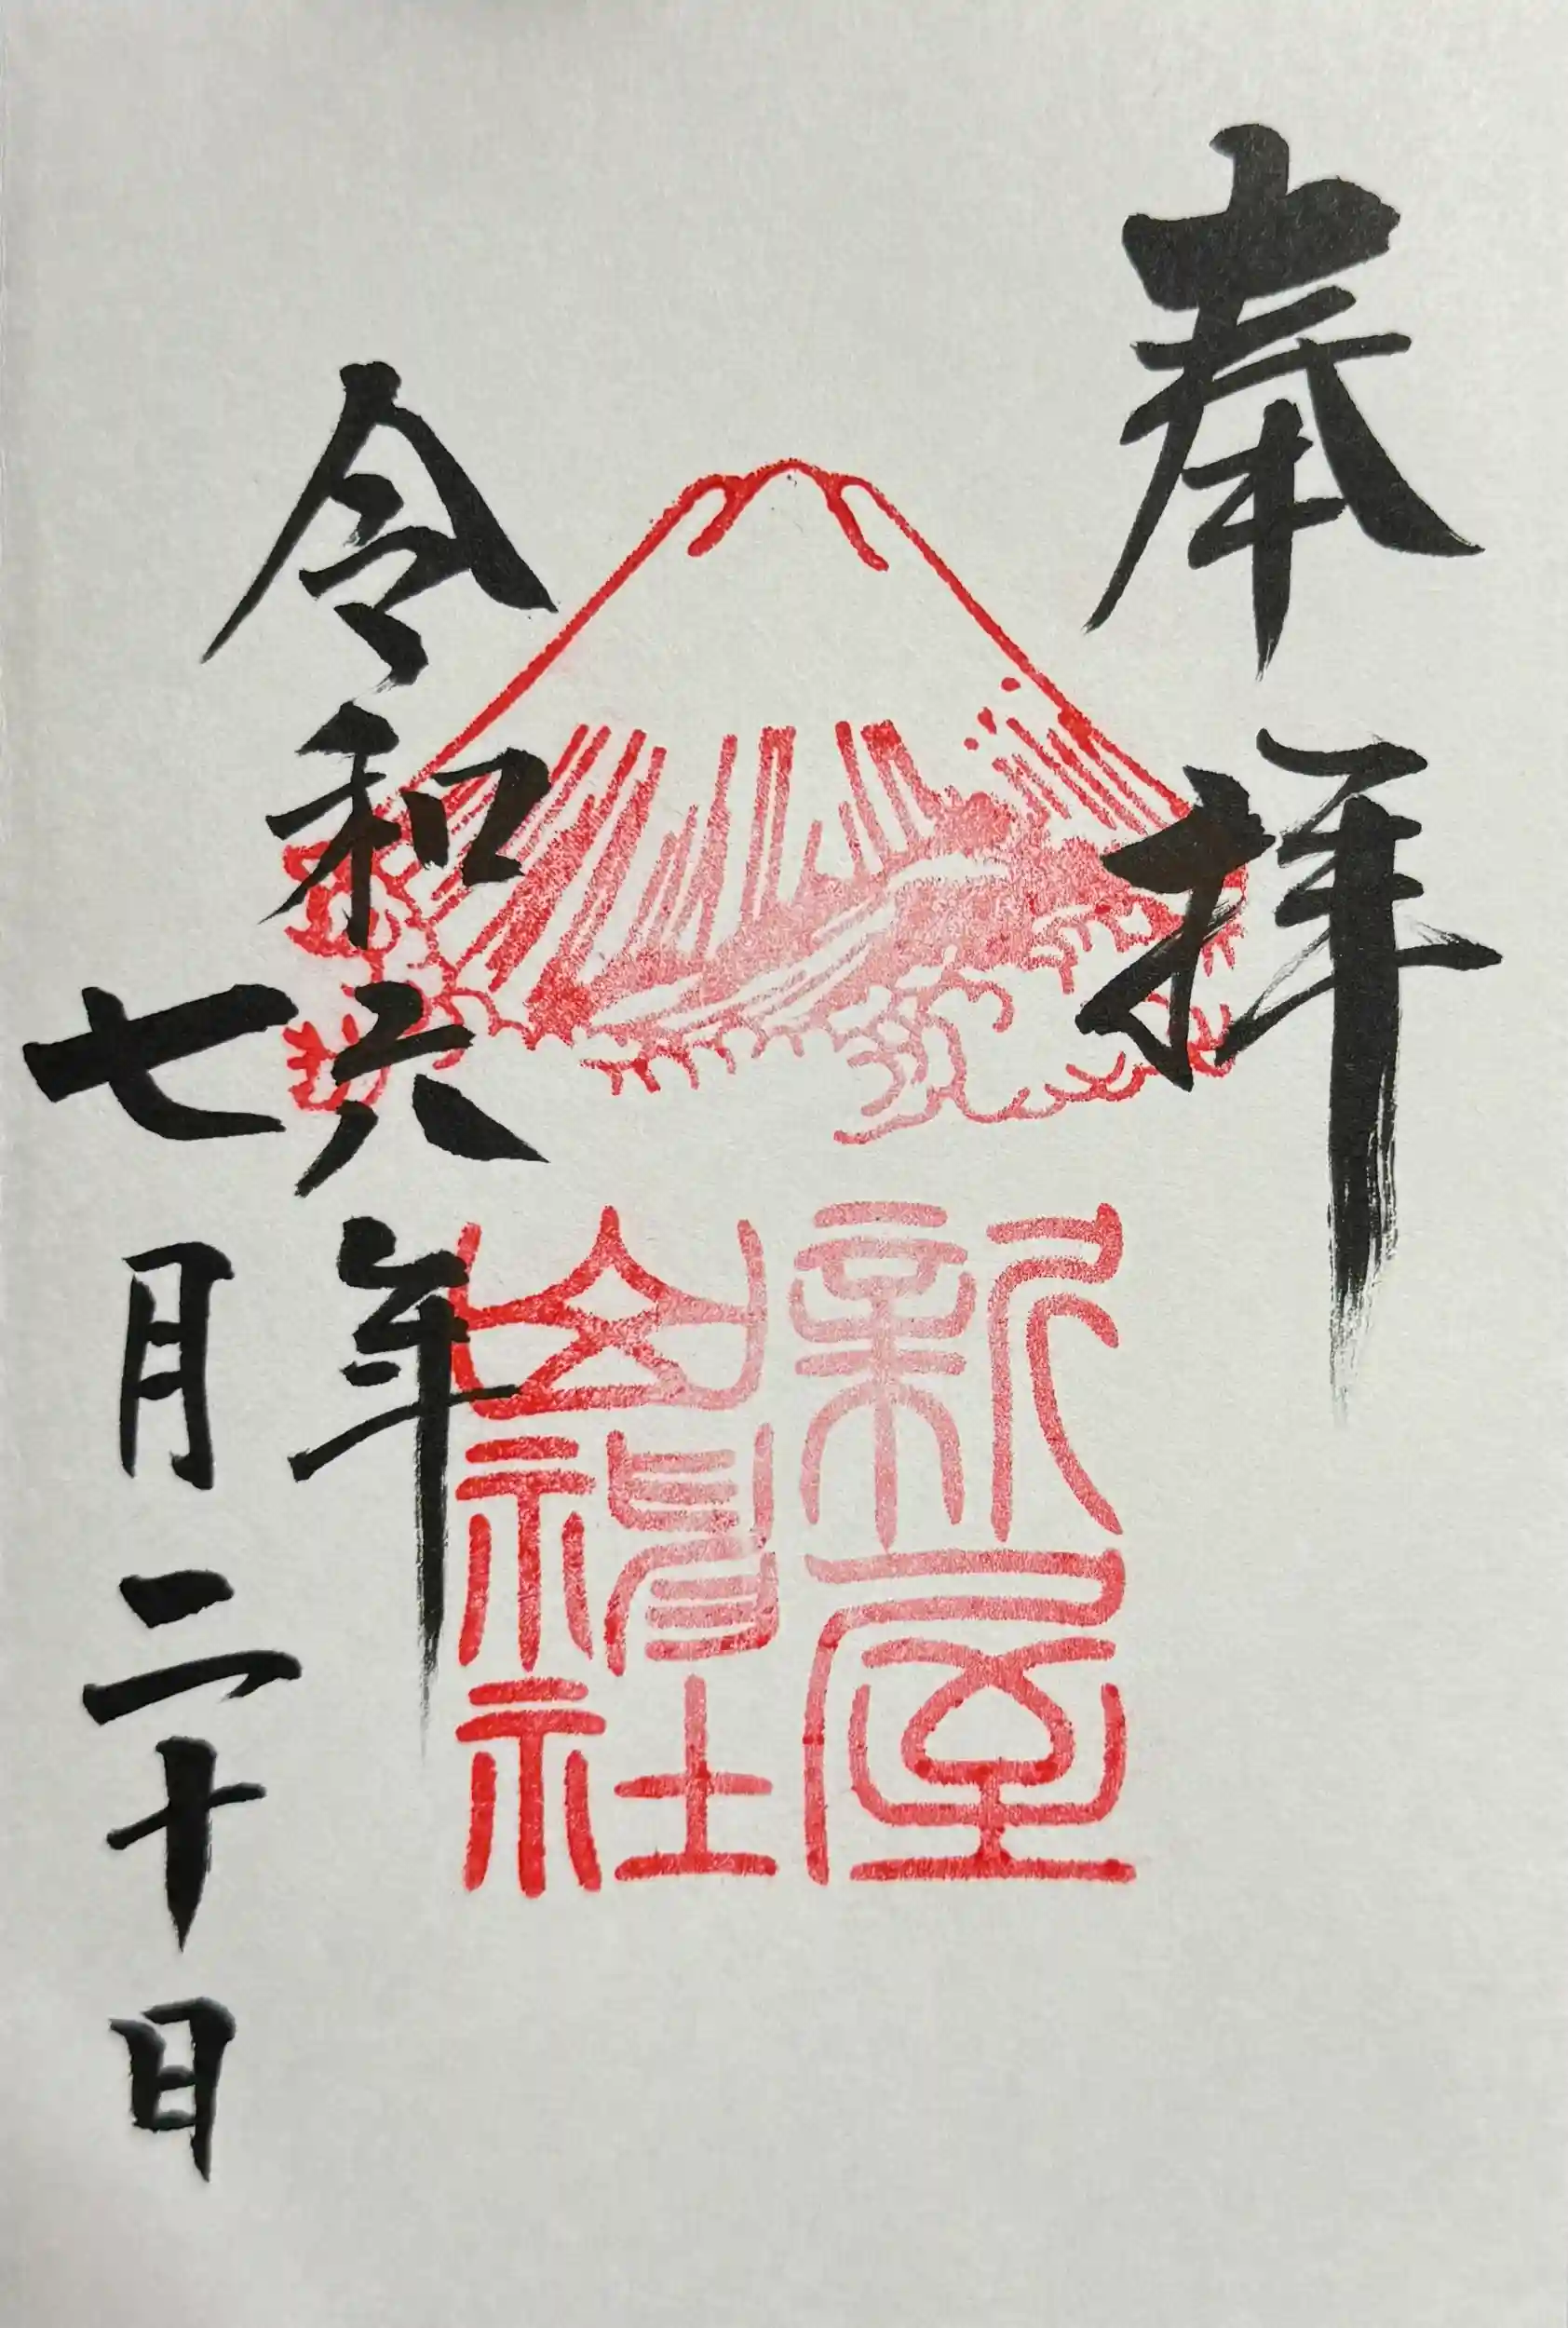 奉拝
新屋
山神社
令和六年
七月二十日